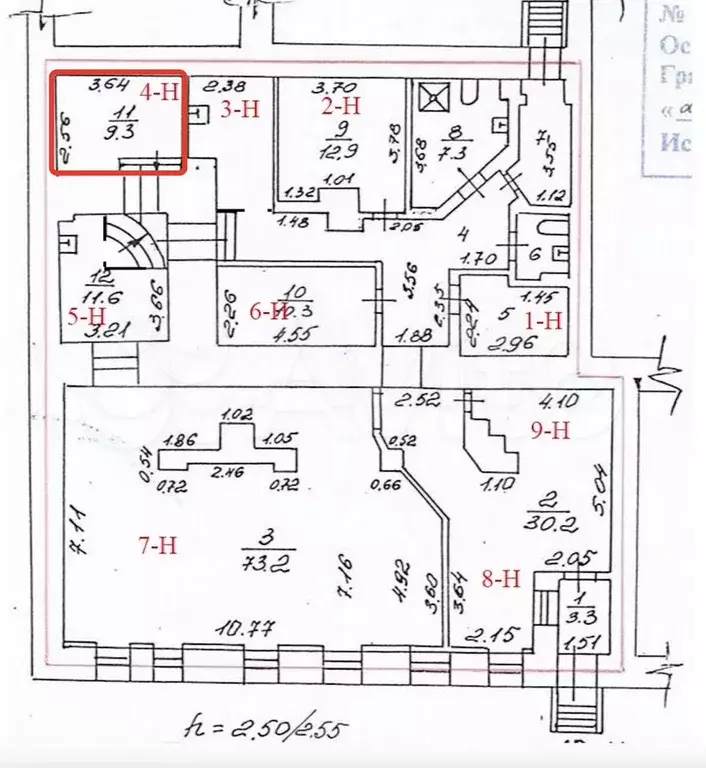 №
Ос
Гра
« а
Ис
3.64
4-Н
2.56
11
9.3
2.38
3-Н
3.70
2-Н
9
12.9
3.78
1.32
1.01
1.48
2.05
3.68
8
7.3
7
3.55
1.12
4
1.70
6
12
11.6
3.66
5-Н
3.21
2.26
10
10.3
6-Н
4.55
3.56
1.88
2.35
1.45
5
1-Н
2.96
2.52
4.10
9-Н
1.02
1.86
1.05
0.54
0.72
2.46
0.72
0.52
0.66
1.10
2
30.2
5.04
7.11
7-Н
3
73.2
7.16
4.92
3.60
3.64
8-Н
2.05
1
3.3
1.51
10.77
2.15
h = 2.50/2.55